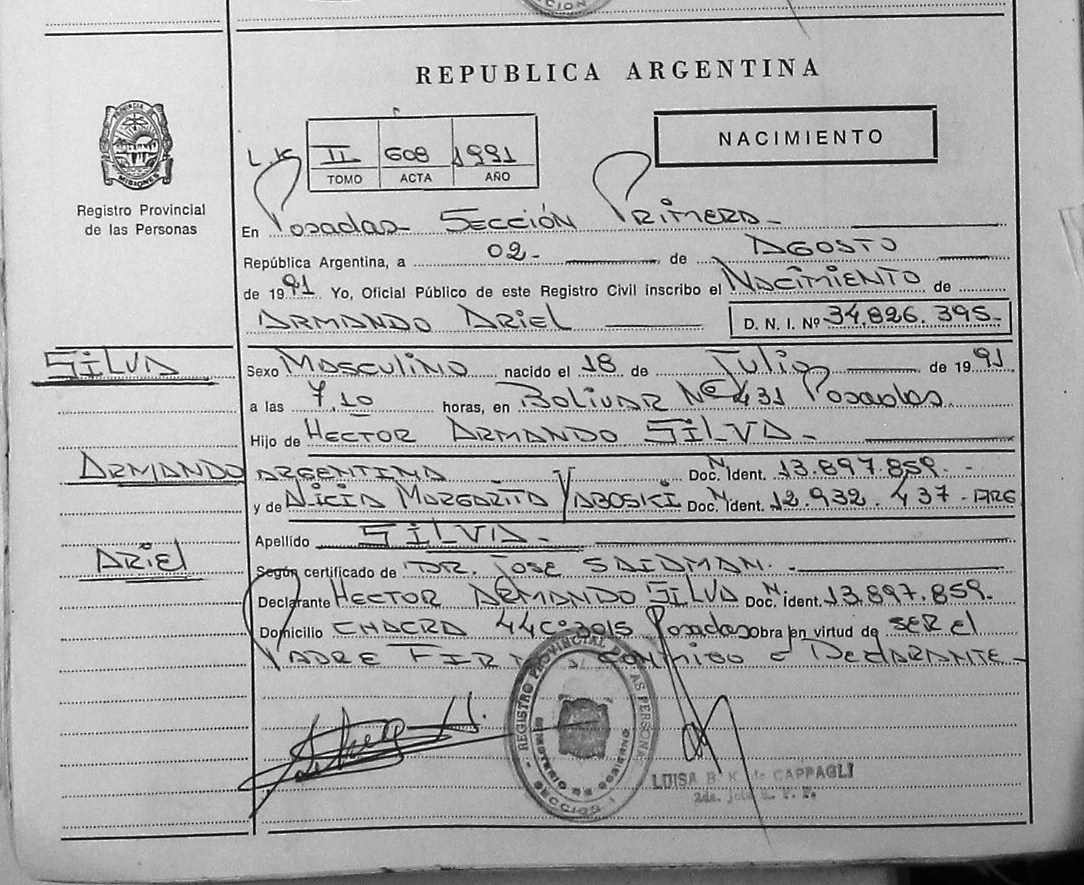 SECCION
REPUBLICA ARGENTINA
NACIMIENTO
PROVINCIA DE MISIONES
Registro Provincial
de las Personas
II 608 1991
TOMO ACTA AÑO
En Posadas Sección Primera
República Argentina, a 02 de Agosto
de 1991 Yo, Oficial Público de este Registro Civil inscribo el Nacimiento de
Armando Ariel D. N. I. Nº 34.826.395
Silva
Sexo Masculino nacido el 18 de Julio de 1991
a las 7.10 horas, en Bolivar Nº 431 Posadas
Hijo de Hector Armando Silva
Armando
Argentina Doc. Ident. Nº 13.897.859
y de Alicia Margarita Yaboski Doc. Ident. Nº 12.932.437 - Arg
Apellido Silva
Ariel
Según certificado de Dr. Jose Saidman
Declarante Hector Armando Silva Doc. Ident. Nº 13.897.859
Domicilio Chacra 44 Cº 3015 Posadas obra en virtud de ser el
Padre Firma conmigo e Declarante
REGISTRO PROVINCIAL DE LAS PERSONAS
MINISTERIO DE GOBIERNO
SECCION 1
LUISA B. K. de CAPPAGLI
2da.